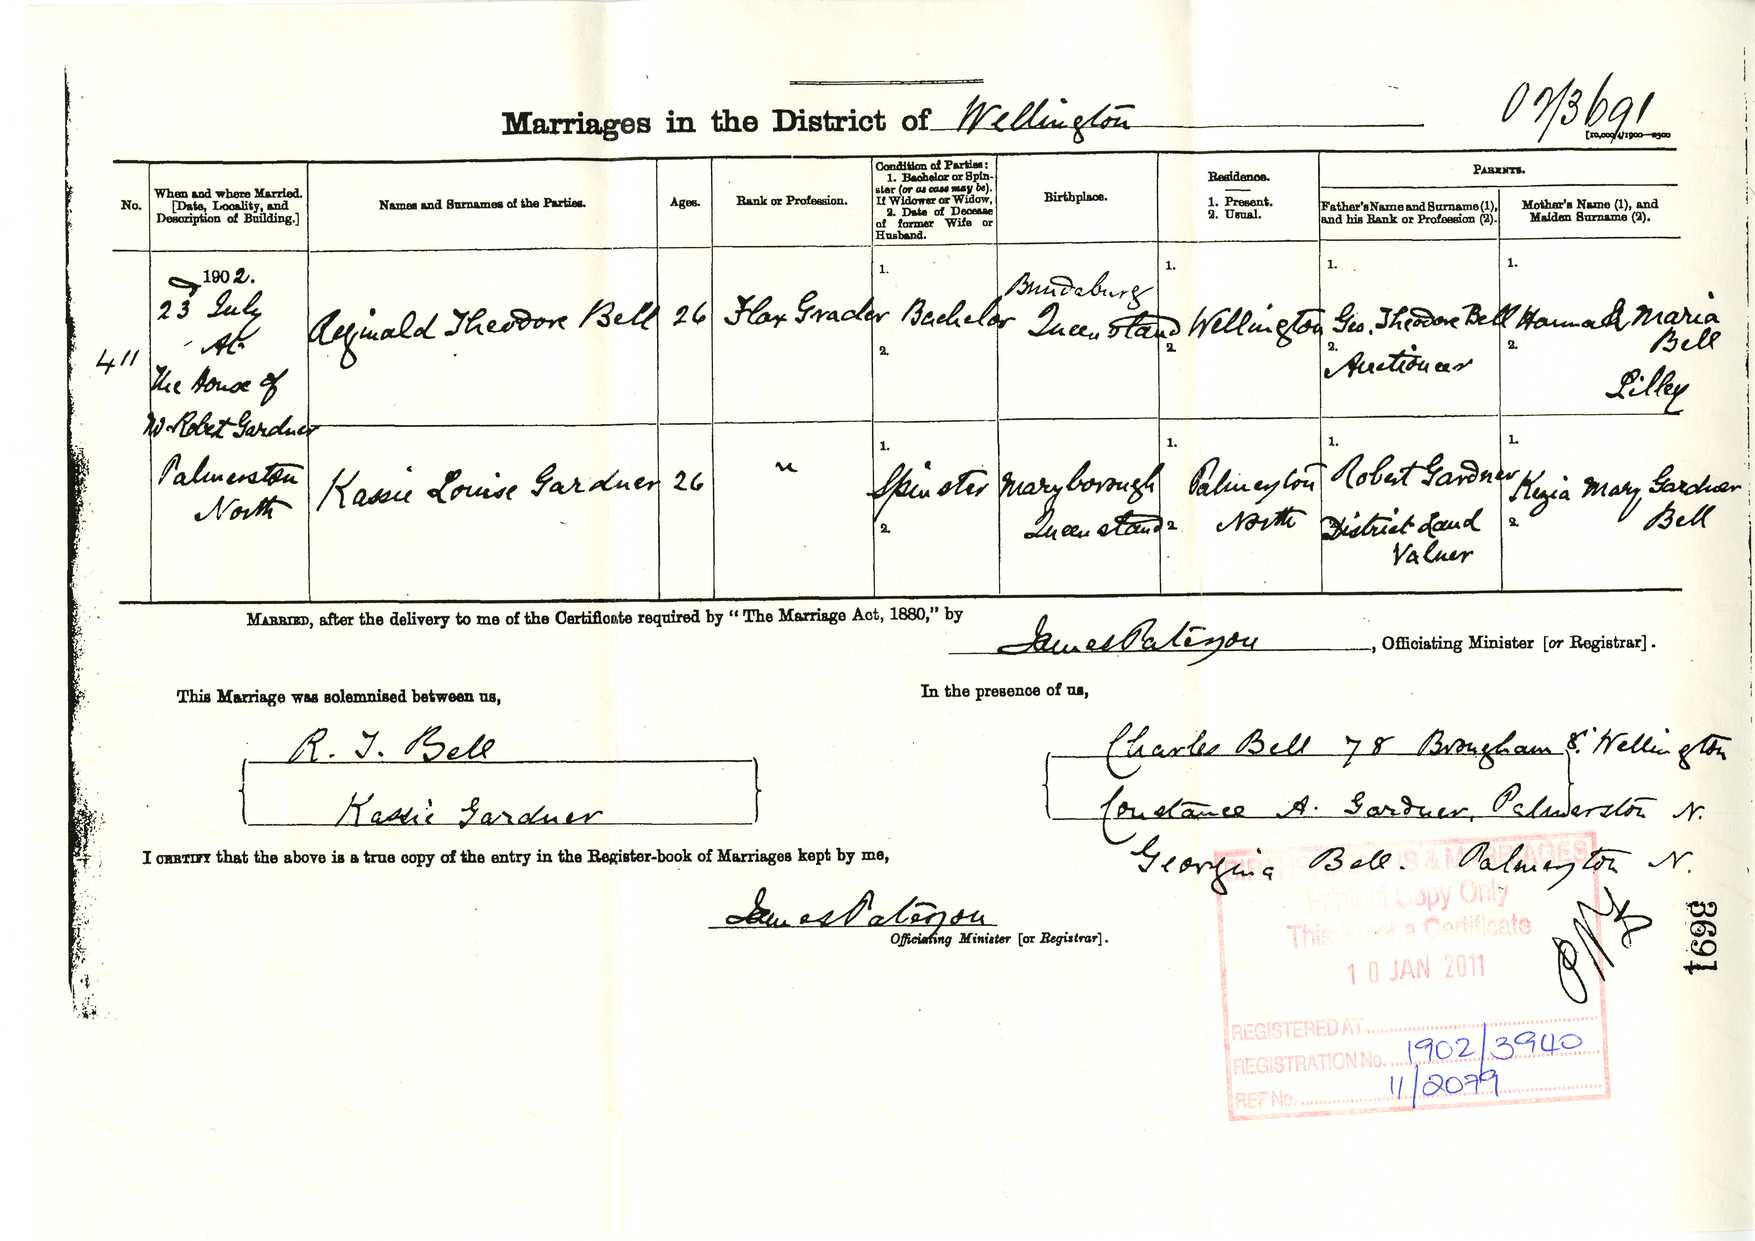 Marriages in the District of Wellington
02/3691
[10,000/4/1900—2300
No.
When and where Married.
[Date, Locality, and
Description of Building.]
Names and Surnames of the Parties.
Ages.
Rank or Profession.
Condition of Parties:
1. Bachelor or Spin-
ster (or as case may be).
If Widower or Widow,
2. Date of Decease
of former Wife or
Husband.
Birthplace.
Residence.
1. Present.
2. Usual.
PARENTS.
Father's Name and Surname (1),
and his Rank or Profession (2).
Mother's Name (1), and
Maiden Surname (2).
4"
1902.
23 July
At
The House of
Mr Robert Gardner
Palmerston
North
Reginald Theodore Bell
26
Flax Grader
1.
Bachelor
2.
Bundaburg
Queensland
1.
Wellington
2.
1.
Geo. Theodore Bell
2.
Auctioneer
1.
Hannah Maria
Bell
2.
Lilley
Kassie Louise Gardner
26
"
1.
Spinster
2.
Maryborough
Queensland
1.
Palmerston
North
2
1.
Robert Gardner
District Land
Valuer
1.
Kezia Mary Gardner
2
Bell
MARRIED, after the delivery to me of the Certificate required by "The Marriage Act, 1880," by
James Paterson, Officiating Minister [or Registrar].
This Marriage was solemnised between us,
R. T. Bell
Kassie Gardner
In the presence of us,
Charles Bell 78 Brougham St Wellington
Constance A. Gardner, Palmerston N.
Georgina Bell. Palmerston N.
I CERTIFY that the above is a true copy of the entry in the Register-book of Marriages kept by me,
James Paterson
Officiating Minister [or Registrar].
3691
BIRTHS DEATHS & MARRIAGES
Copy Only
This is not a Certificate
10 JAN 2011
REGISTERED AT
REGISTRATION No. 1902/3940
REF No. 11/2079